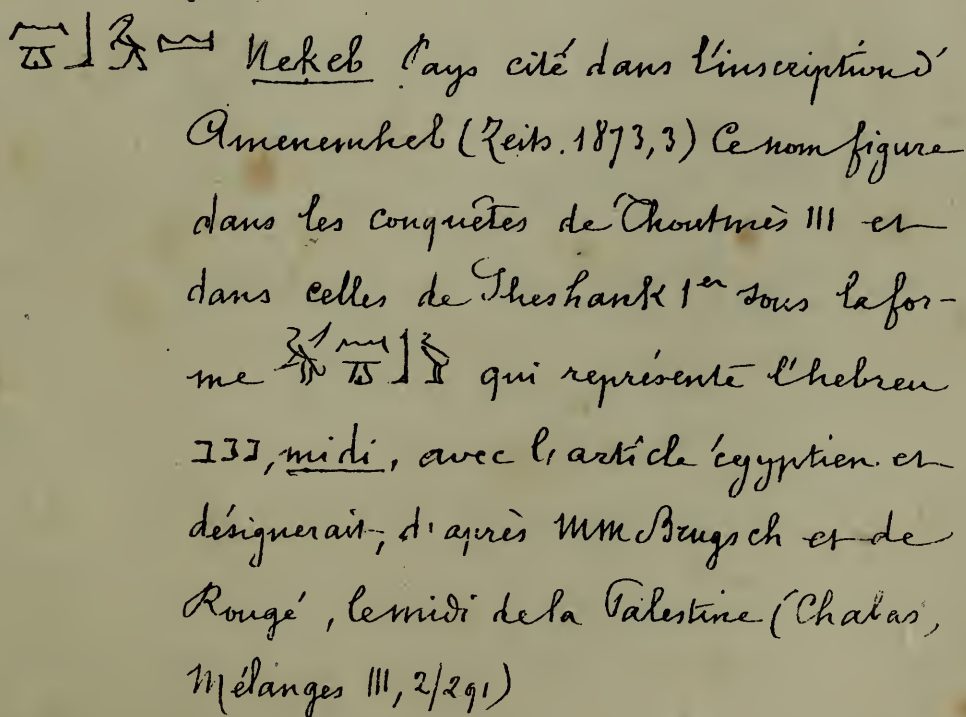 𓈖𓎼𓃀𓅱𓈉 Nekeb Pays cité dans l'inscription d'
Amenemheb (Zeits. 1873,3) Ce nom figure
dans les conquêtes de Thoutmès III et
dans celles de Sheshank 1er sous la for-
me 𓅮𓈖𓎼𓃀𓅱 qui représente l'hebreu
נגב, midi, avec l'article égyptien et
désignerait, d'après MM Brugsch et de
Rougé, le midi de la Palestine (Chabas,
Mélanges III, 2/291)